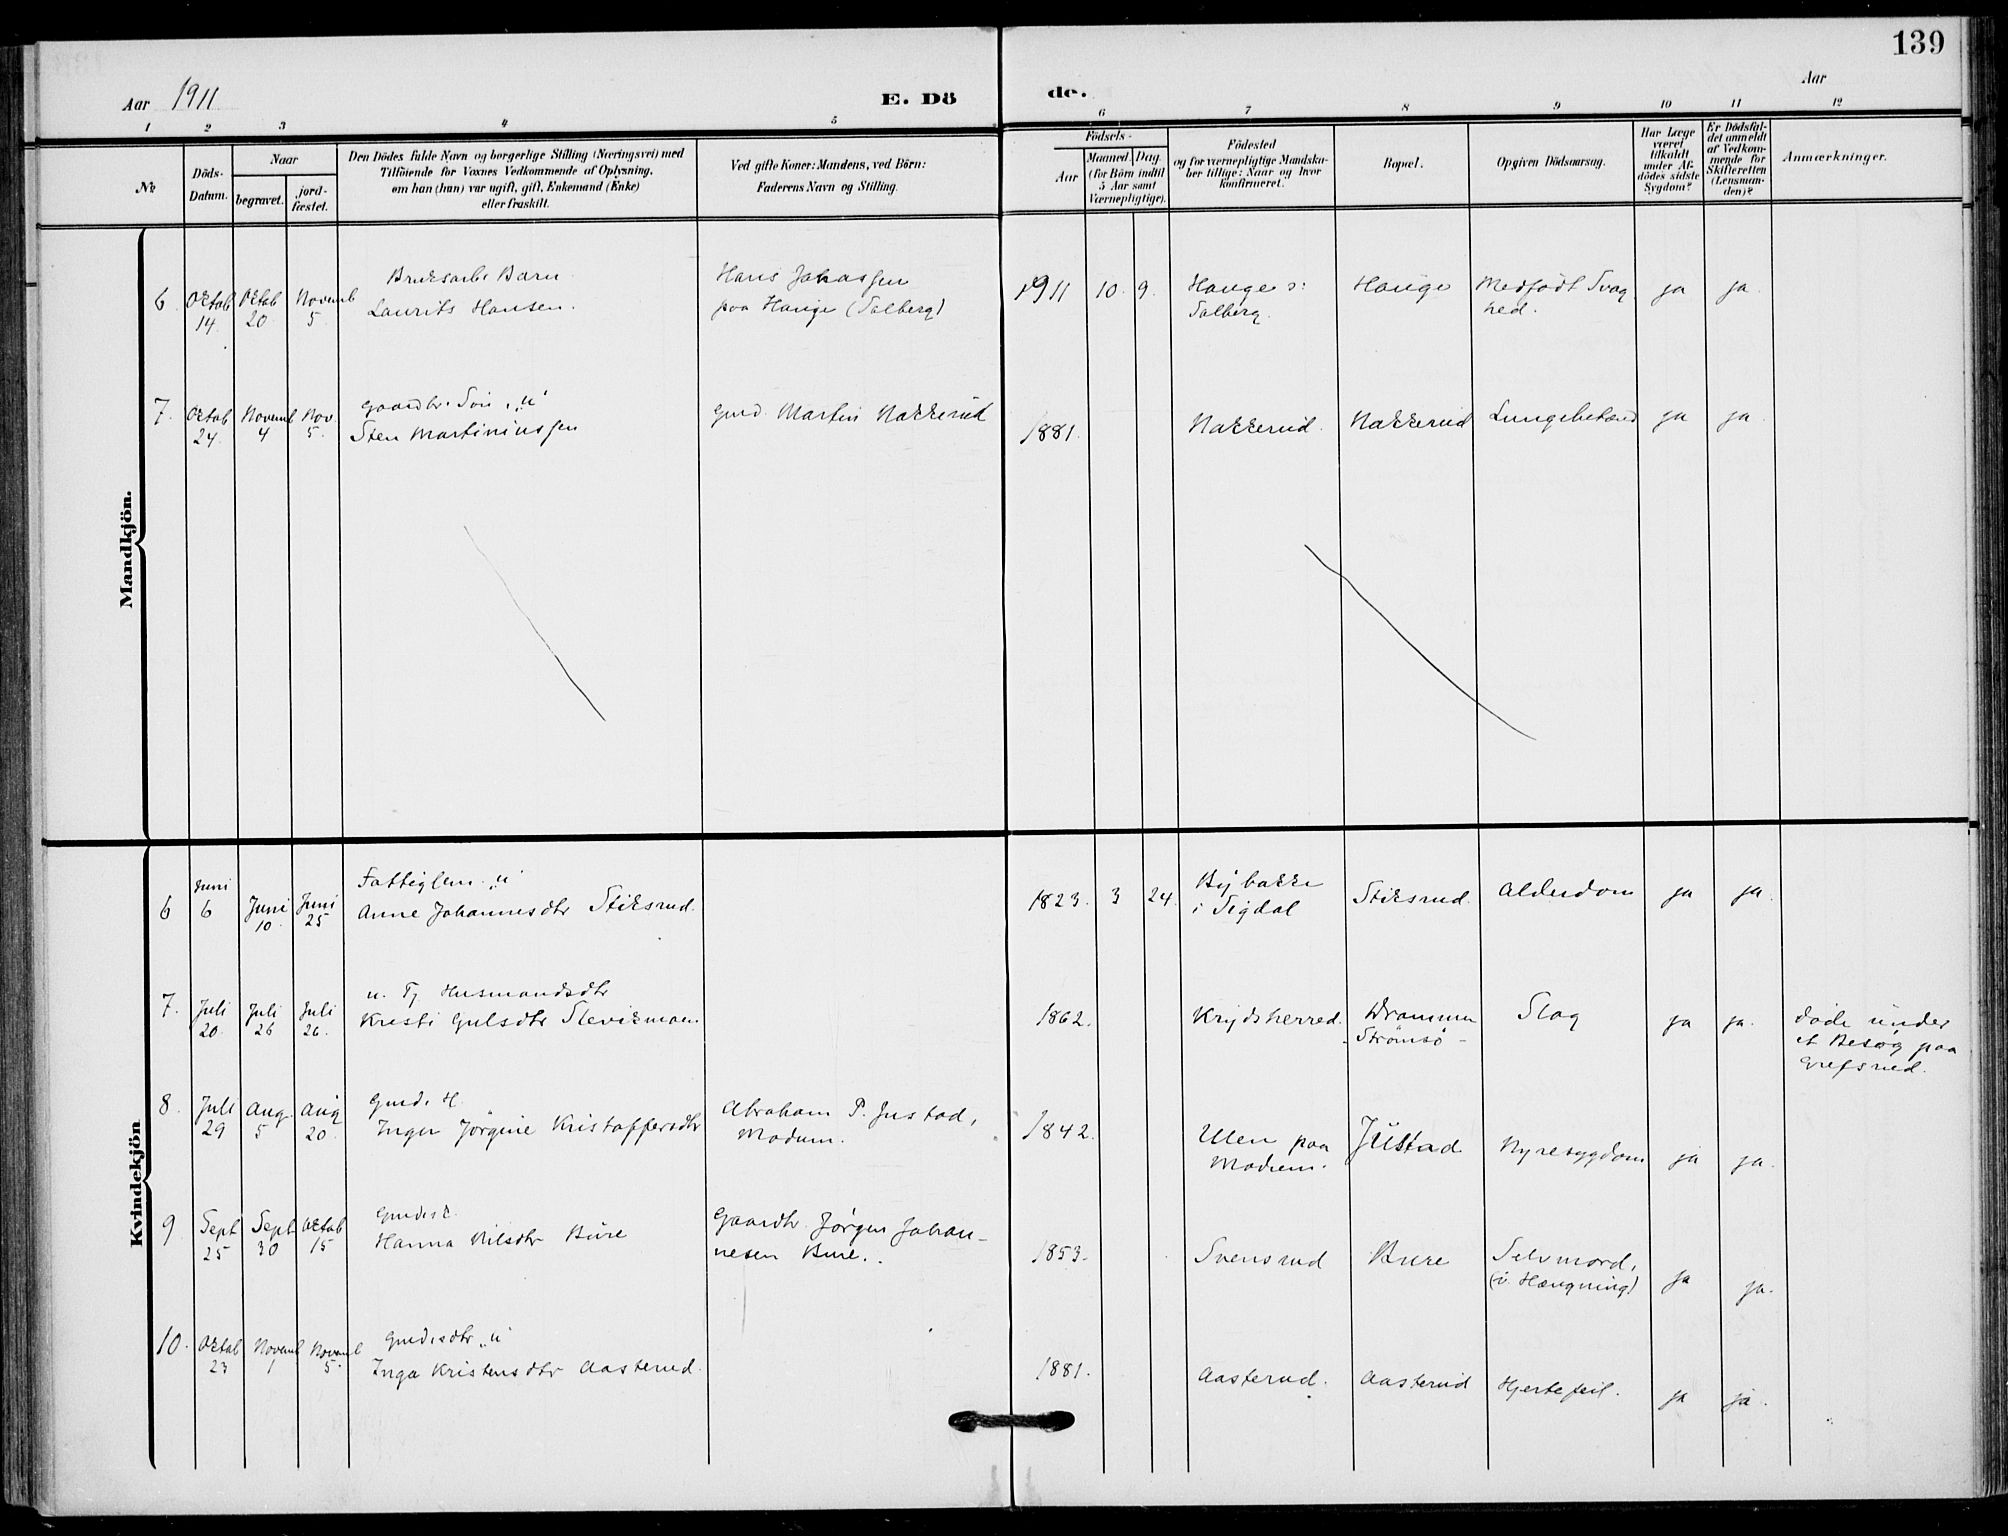 139
Aar 1911
E. Dö
de.
Aar
1 2 3 4 5 6 7 8 9 10 11 12
№
Döds-
Datum.
Naar
begravet.
jord-
fæstet.
Den Dödes fulde Navn og borgerlige Stilling (Næringsvei) med
Tilföiende for Voxnes Vedkommende af Oplysning,
om han (hun) var ugift, gift, Enkemand (Enke)
eller fraskilt.
Ved gifte Koner: Mandens, ved Börn:
Faderens Navn og Stilling.
Födsels-
Aar
Maaned. Dag.
(for Börn indtil
5 Aar samt
Værnepligtige).
Födested
og for værnepligtige Mandska-
ber tillige: Naar og hvor
konfirmeret.
Bopæl.
Opgiven Dödsaarsag.
Har Læge
været
tilkaldt
under Af-
dödes sidste
Sygdom?
Er Dödsfal-
det anmeldt
af Vedkom-
mende for
Skifteretten
(Lensman-
den)?
Anmærkninger.
Mandkjön.
6 Oktob 14 Oktob 20 Novemb 5
Bruksarb. Barn
Laurits Hansen.
Hans Johassen
paa Hauge (Solberg)
1911 10. 9.
Hauge s:
Solberg.
Hauge
Medfödt Svag
hed.
ja ja.
7. Oktob 24. Novemb 4 Nov. 5.
Gaardbr. Sön, „u"
Sten Martiniussen
Gmd. Martin Nakkerud
1881.
Nakkerud. Nakkerud Lungebetænd ja ja.
Kvindekjön
6 Juni 6 Juni 10. Juni 25
Fattiglem. „u"
Anne Johannesdtr Stiksrud.
1823. 3 24.
Bybakke
i Sigdal
Stiksrud. Alderdom ja ja.
7. Juli 20. Juli 26 Juli 26.
u. Tj. Husmandsdtr
Kristi Gulsdtr Slevikmoen
1862.
Krydsherred. Drammen
- Strömsö -
Slag ja ja.
döde under
et Besög paa
Grefsrud.
8. Juli 29 Aug. 5 Aug 20.
Gmd. H.
Inger Jörgine Kristoffersdtr
Abraham P. Justad,
Modum.
1842.
Ulen paa
Modum.
Justad Nyresygdom ja ja.
9 Sept 25 Sept 30 Oktob 15
Gmds K.
Hanna Nilsdtr Bure
Gaardbr. Jörgen Johan-
nesen Bure.
1853.
Svensrud Bure Selvmord,
(v. Hængning)
ja ja.
10. Oktob 23 Novemb 1 Novemb 5.
Gmdsdtr „u"
Inga Kristensdtr Aasterud.
1881.
Aasterud. Aasterud Hjertefeil. ja ja.